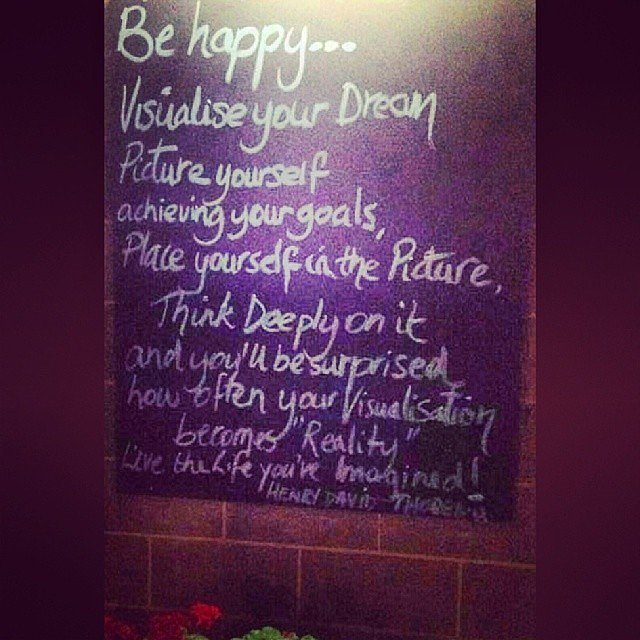 Be happy...
Visualise your Dream
Picture yourself
achieving your goals,
Place yourself in the Picture,
Think Deeply on it
and you'll be surprised
how often your Visualisation
becomes "Reality"
Live the Life you've Imagined!
HENRY DAVID THOREAU